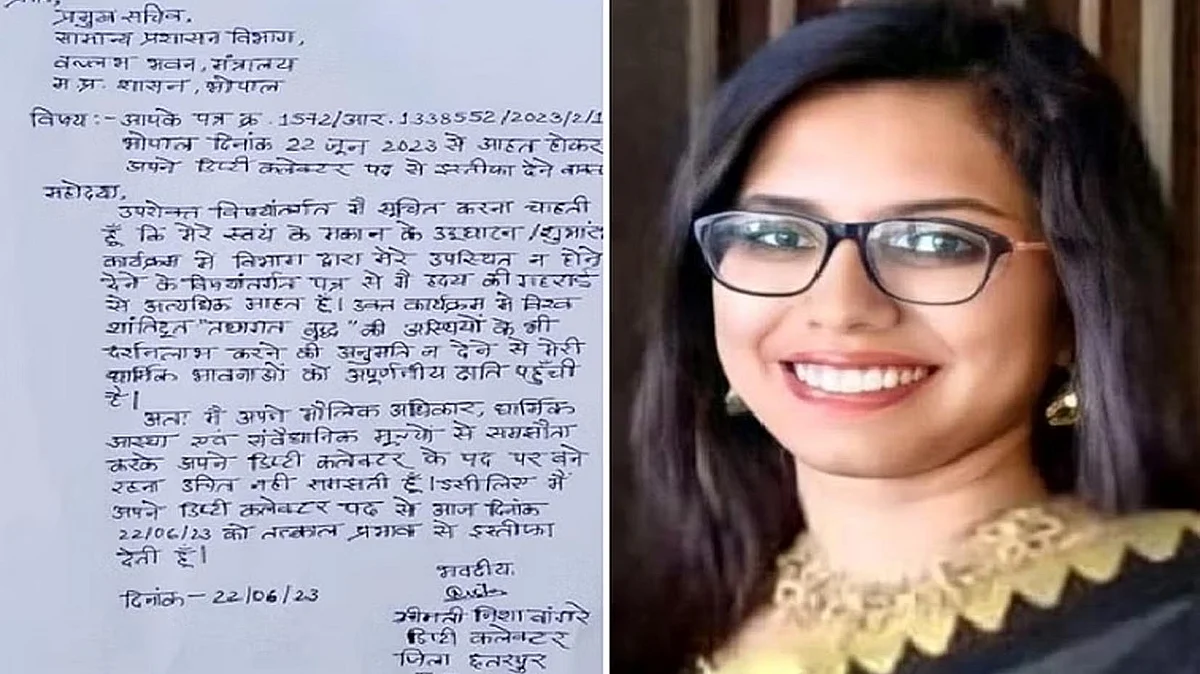 प्रमुख सचिव,
सामान्य प्रशासन विभाग,
वल्लभ भवन, मंत्रालय
म.प्र. शासन, भोपाल
विषय :- आपके पत्र क्र. 1572/आर.1338552/2023/2/1
भोपाल दिनांक 22 जून 2023 से आहत होकर
अपने डिप्टी कलेक्टर पद से इस्तीफा देने
महोदया,
उपरोक्त विषयांतर्गत मैं सूचित करना चाहती
हूँ कि मेरे स्वयं के मकान के उद्घाटन /
कार्यक्रम में विभाग द्वारा मेरे उपस्थित न होने
देने के विषयांतर्गत पत्र से मैं हृदय की गहराई
से अत्यधिक आहत हूँ। उक्त कार्यक्रम में विश्व
शांतिदूत "तथागत बुद्ध" की अस्थियों के भी
दर्शनलाभ करने की अनुमति न देने से मेरी
धार्मिक भावनाओं को अपूर्णनीय क्षति पहुँची
है।
अतः मैं अपने मौलिक अधिकार, धार्मिक
आस्था एवं संवैधानिक मूल्यों से समझौता
करके अपने डिप्टी कलेक्टर के पद पर बने
रहना उचित नहीं समझती हूँ। इसीलिए मैं
अपने डिप्टी कलेक्टर पद से आज दिनांक
22/06/23 को तत्काल प्रभाव से इस्तीफा
देती हूँ।
भवदीय.
दिनांक - 22/06/23
श्रीमती निशा बांगरे
डिप्टी कलेक्टर
जिला छतरपुर